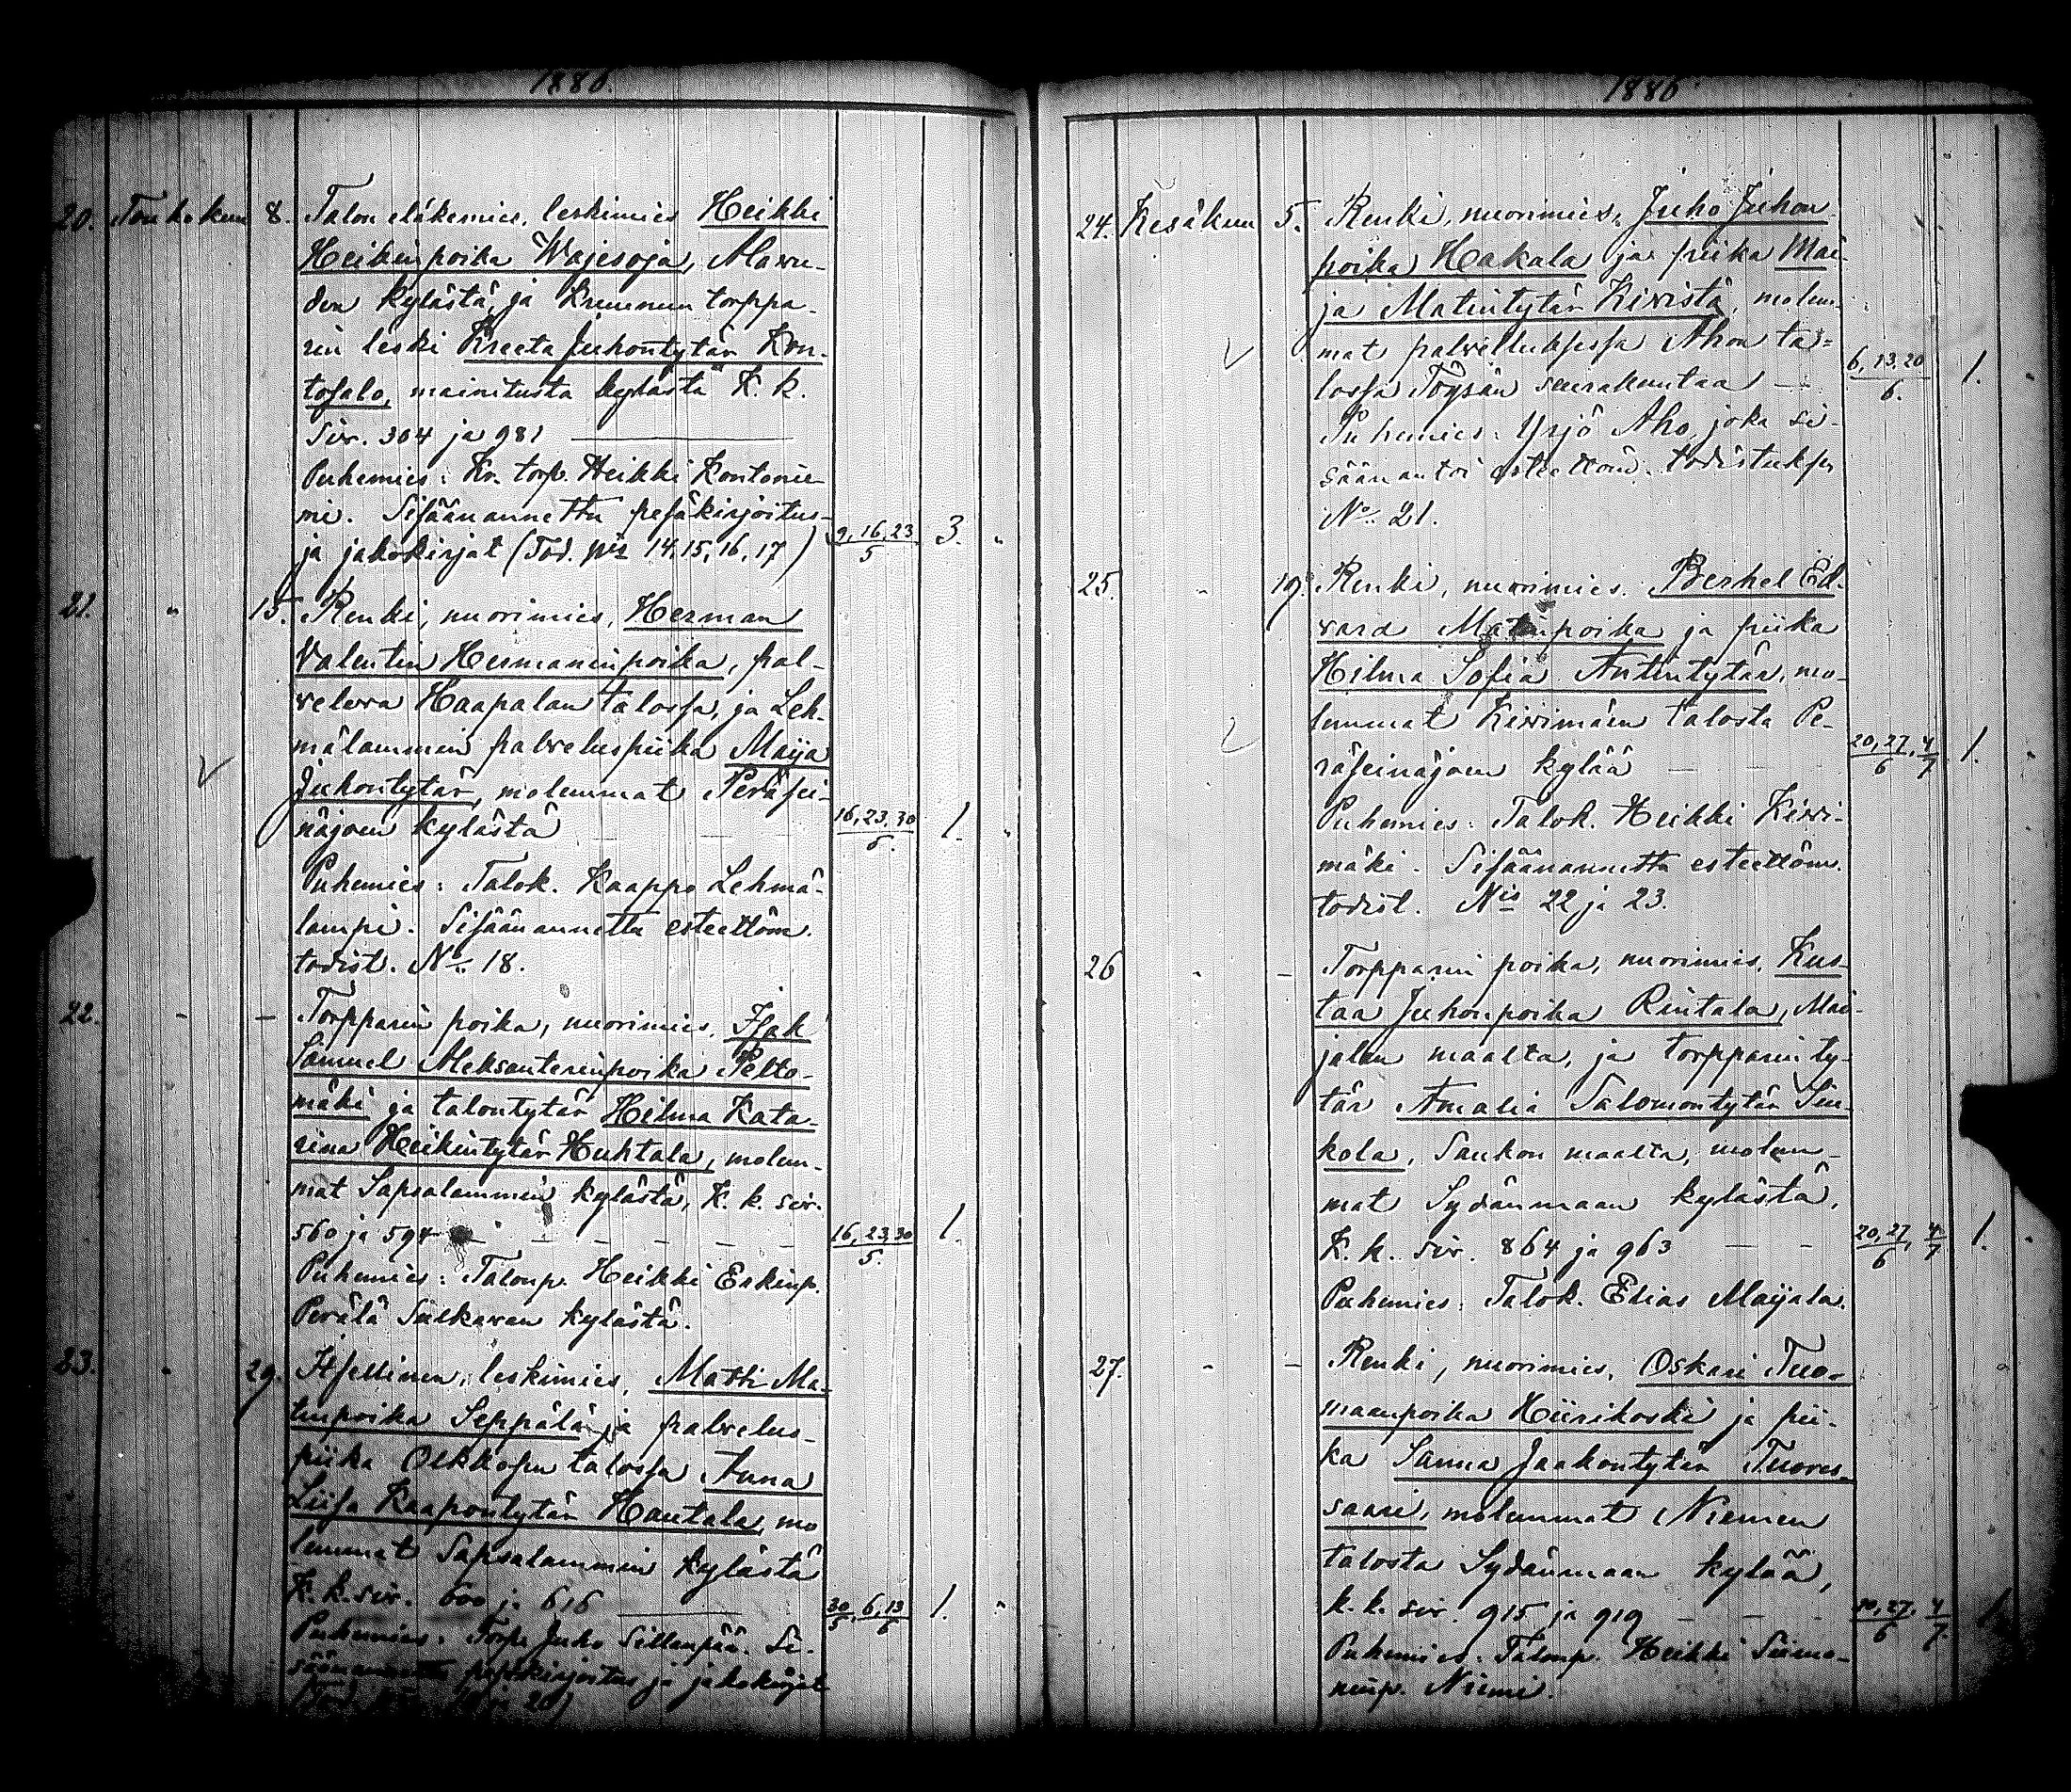 1886.
20. Toukokuu 8. Talon eläkemies, leskimies Heikki
Heikinpoika Wajesoja, Alavu-
den kylästä, ja Kruunun torppa-
rin leski Kreeta Juhontytär Kon-
tosalo, mainitusta kylästä K. k.
Siv. 304 ja 981
Puhemies: Kr. torp. Heikki Kontonie-
mi. Sisäänannettu pesäkirjoitus-
ja jakokirjat (Tod. Nis 14, 15, 16, 17) 9, 16, 23/5 3. "
21. " 15. Renki, nuorimies, Herman
Valentin Hermaninpoika, pal-
veleva Haapalan talossa, ja Leh-
mälammin palveluspiika Maija
Juhontytär, molemmat Peräsei-
näjoen kylästä 16, 23, 30/5. 1. "
Puhemies: Talok. Kaappo Lehmä-
lampi. Sisäänannettu esteettöm.
todist. No 18.
22. - - Torpparin poika, nuorimies, Isak
Samuel Aleksanterinpoika Pelto-
mäki ja talontytär Hilma Kata-
rina Heikintytär Huhtala, molem-
mat Sapsalammin kylästä, K. k. siv.
560 ja 594 16, 23, 30/5. 1.
Puhemies: Talonp. Heikki Erkinp.
Perälä Sulkavan kylästä.
23. " 29. Itsellinen, leskimies, Matti Ma-
tinpoika Seppälä ja palvelus-
piika Olkkosen talossa Anna
Liisa Kaapontytär Hautala, mo
lemmat Sapsalammin kylästä
K. k. siv. 600 ja 616 30/5, 6, 13/6 1. "
Puhemies: Torp. Juho Sillanpää. Si-
säänannettu pesäkirjoitus ja jakokirjat
1886
24. Kesäkuu 5. Renki, nuorimies, Juho Juhon
poika Hakala ja piika Mai-
ja Matintytär Kivistä, molem-
mat palvelluksessa Ahon ta-
lossa Töysän seurakuntaa 6, 13, 20/6. 1. "
Puhemies: Yrjö Aho, joka si-
säänantoi esteettöm. todistuksen
No. 21.
25. " 19. Renki, nuorimies. Berhel Ed-
vard Matinpoika ja piika
Hilma Sofia Antintytär, mo-
lemmat Kivimäen talosta Pe-
räseinäjoen kylää 20, 27/6, 4/7 1. "
Puhemies: Talok. Heikki Kivi-
mäki. Sisäänannettu esteettöm.
todist. Nis 22 ja 23.
26 " - Torpparin poika, nuorimies, Kus-
taa Juhonpoika Rintala, Mai-
jalan maalta, ja torpparin ty-
tär Amalia Salomontytär Sau-
kola, Saukon maalta, molem-
mat Sydänmaan kylästä,
K. k. siv. 864 ja 963 20, 27/6, 4/7 1.
Puhemies: Talok. Elias Maijala.
27. " - Renki, nuorimies, Oskari Tuo-
maanpoika Hiirikoski ja pii-
ka Sanna Jaakontytär Tuores-
saari, molemmat Niemen
talosta Sydänmaan kylää,
k. k. siv. 915 ja 919 20, 27/6, 4/7. 1.
Puhemies: Talonp. Heikki Siimo-
ninp. Niemi.